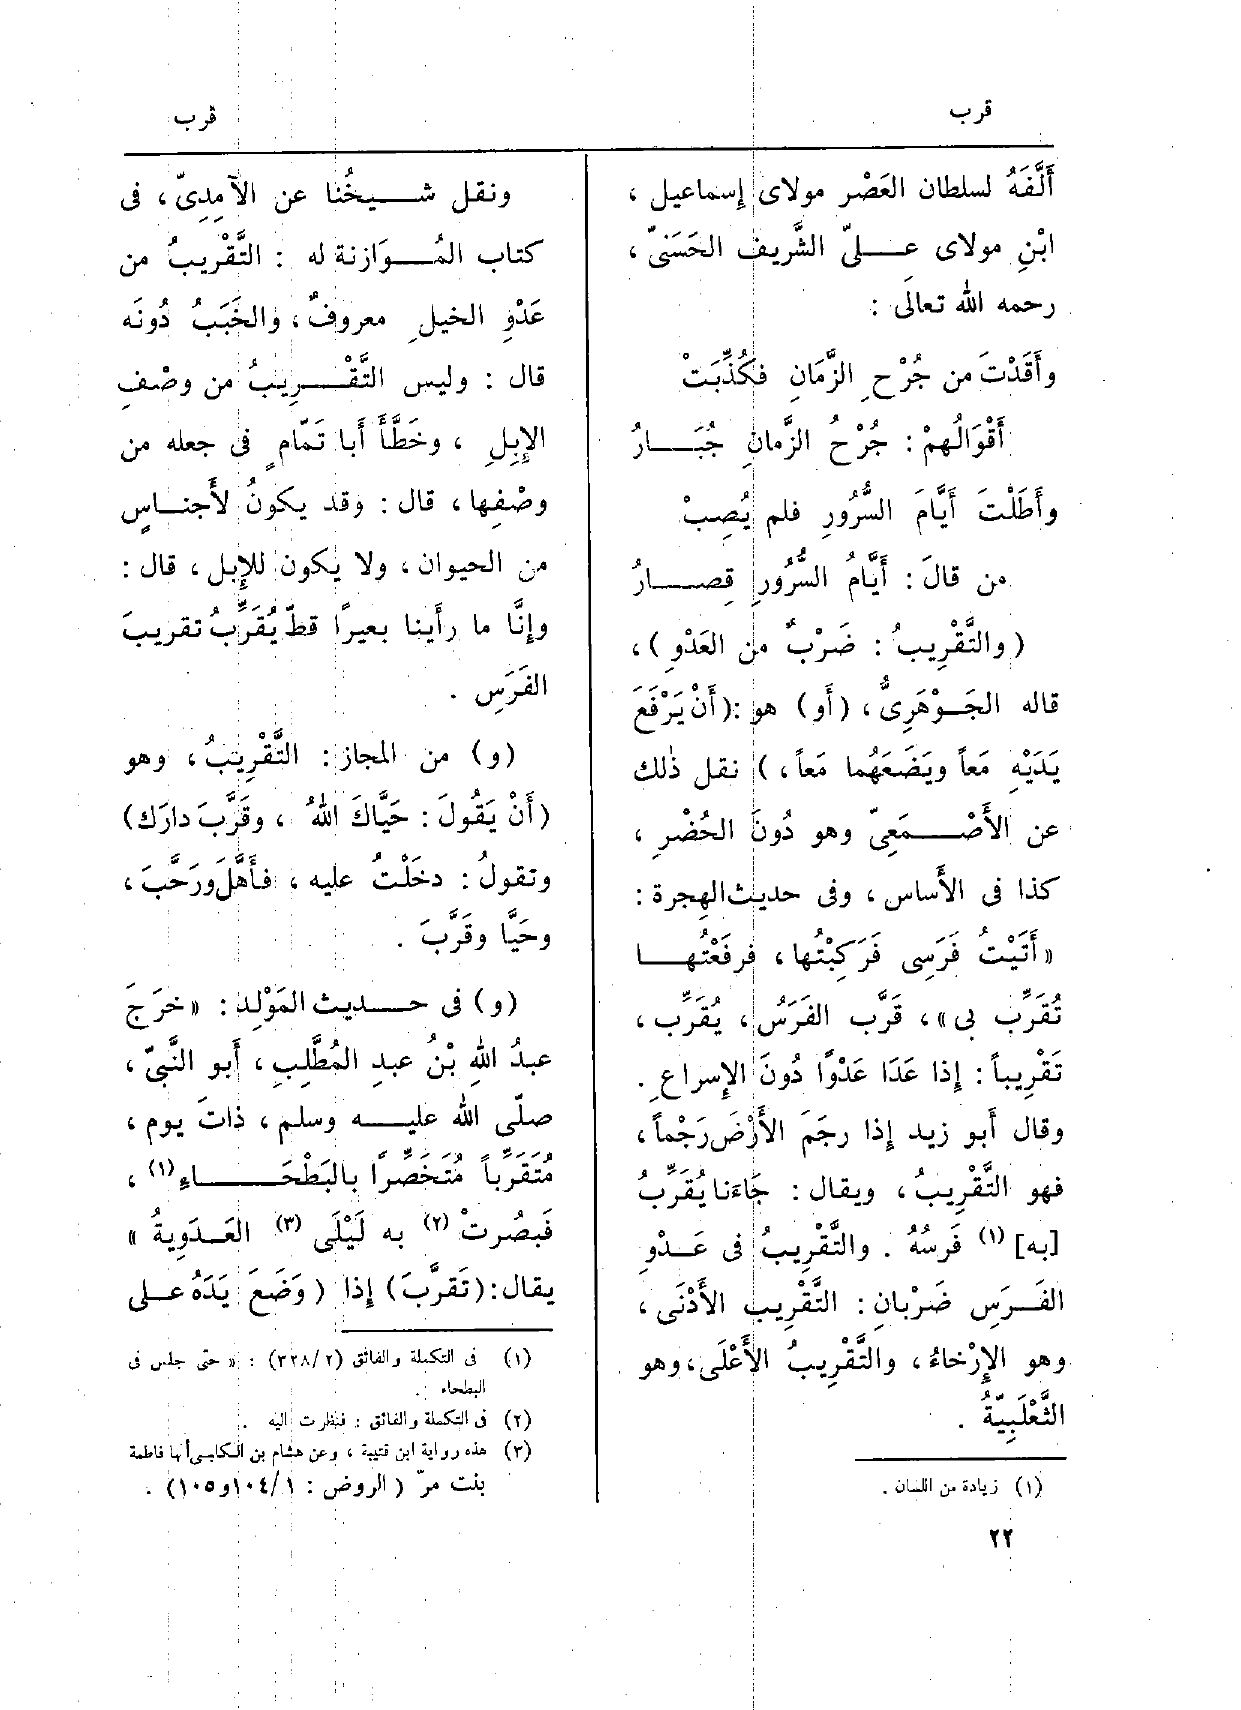 قرب
قرب
أَلَّفَهُ لسلطان العَصْر مولاى إسماعيل ،
ابْنِ مولاى علىّ الشَّريف الحَسَنىّ ،
رحمه الله تعالَى :
وأَقَدْتَ من جُرْحِ الزَّمَانِ فكُذِّبَتْ
أَقْوَالُهمْ : جُرْحُ الزَّمانِ جُبَارُ
وأَطَلْتَ أَيَّامَ السُّرُورِ فلم يُصِبْ
من قالَ : أَيَّامُ السُّرُورِ قِصارُ
( والتَّقْرِيبُ : ضَرْبٌ من العَدْوِ ) ،
قاله الجَوْهَرِىُّ ، (أَو) هو :(أَنْ يَرْفَعَ
يَدَيْهِ مَعاً ويَضَعَهُما مَعاً ، ) نقل ذٰلك
عن الأَصْمَعِىّ وهو دُونَ الحُضْرِ ،
كذا فى الأَساس ، وفى حديث الهِجرة :
« أَتَيْتُ فَرَسِى فَرَكِبْتُها ، فرفَعْتُها
تُقَرِّب بى » ، قَرَّب الفَرَسُ ، يُقَرِّب ،
تَقْرِيباً : إذا عَدَا عَدْوًا دُونَ الإسراعِ .
وقال أَبو زيد إذا رجَمَ الأَرْضَ رَجْماً ،
فهو التَّقْرِيبُ ، ويقال : جَاءَنا يُقَرِّبُ
[به] (١) فَرسُهُ . والتَّقْرِيبُ فى عَدْوِ
الفَرَسِ ضَرْبانِ : التَّقْرِيب الأَدْنَى ،
وهو الإرْخاءُ ، والتَّقْرِيبُ الأَعْلَى، وهو
الثَّعْلَبِيّةُ .
(١) زيادة من اللسان .
٢٢
ونقل شيخُنا عن الآمِدِىّ ، فى
كتاب المُوَازنة له : التَّقْرِيبُ من
عَدْوِ الخيلِ معروفٌ ، والخَبَبُ دُونَه
قال : وليس التَّقْرِيبُ من وصْفِ
الإبِلِ ، وخَطَّأَ أَبا تَمّامٍ فى جعله من
وصْفِها ، قال : وقد يكونُ لأَجناسٍ
من الحيوان ، ولا يكون للإبل ، قال :
وإنَّا ما رأَينا بعيرًا قطّ يُقَرِّبُ تقريبَ
الفَرَسِ .
(و) من المجاز : التَّقْرِيبُ ، وهو
(أَنْ يَقُولَ : حَيَّاكَ اللهُ ، وقَرَّبَ دارَك)
وتقولُ : دخَلْتُ عليه ، فأَهَّلَ ورَحَّبَ ،
وحَيَّا وقَرَّبَ .
(و) فى حديث المَوْلِد : « خرَجَ
عبدُ اللهِ بْنُ عبدِ المُطَّلِبِ ، أَبو النَّبىّ ،
صلّى الله عليه وسلم ، ذاتَ يوم ،
مُتَقَرِّباً مُتَخَصِّرًا بالبَطْحَاءِ (١) ،
فَبصُرتْ (٢) به لَيْلَى (٣) العَدَوِيةُ »
يقال : (تَقرَّبَ) إذا (وَضَعَ يَدَهُ على
(١) فى التكملة والفائق (٢/ ٣٣٨) : « حتى جلس فى
البطحاء .
(٢) فى التكملة والفائق : فنظرت اليه .
(٣) هذه رواية ابن قتيبة ، وعن هشام بن الكلبى أنها فاطمة
بنت مرّ ( الروض : ١/ ١٠٤و١٠٥) .